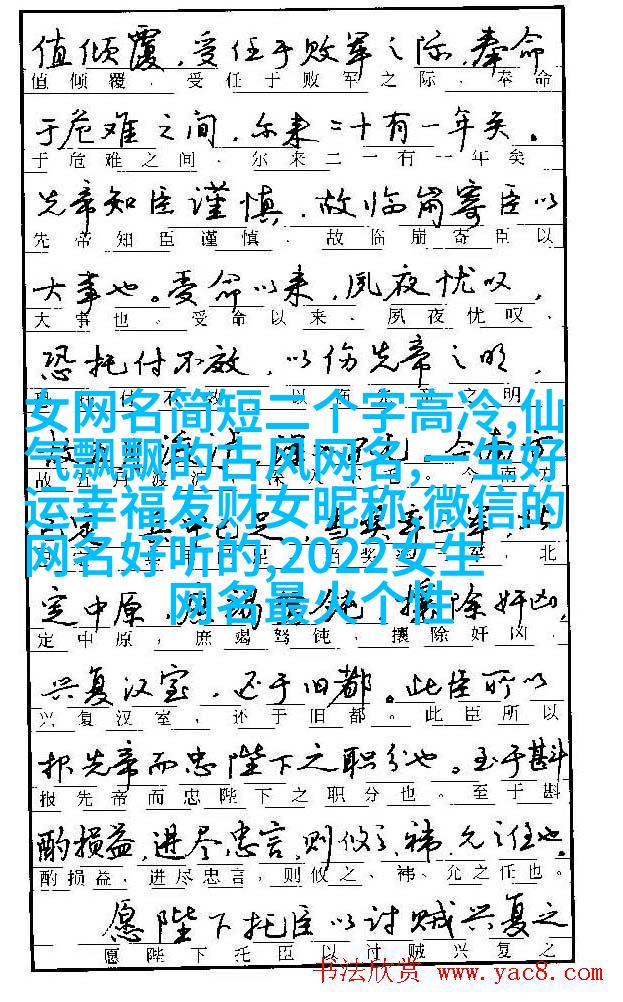 值倾覆，受任于败军之际，奉命
值倾覆．受任于败军之际．奉命
于危难之间，尔来二十有一年矣。
于危难之间．尔来二一有一年矣
先帝知臣谨慎，故临崩寄臣以
先帝知臣谨慎．故临崩寄臣以
大事也。受命以来，夙夜忧叹，
大事也．受命以来．夙夜忧叹．
恐托付不效，以伤先帝之明，
女网名简短二个字高冷,仙
气飘飘的古风网名,一生好
运幸福发财女昵称,微信的
网名好听的,2022女生
网名最火个性
定中原，庶竭驽钝，攘除奸凶，
定中原，庶竭驽钝，攘除奸凶，
兴复汉室，还于旧都。此臣所以
兴复汉室，还于旧都。此臣所以
报先帝而忠陛下之职分也。至于斟
报先帝而忠陛下之职分也。至于斟
酌损益，进尽忠言，则攸之、祎、允之任也。
酌损益．进尽忠言，则攸之、祎、允之任也。
愿陛下托臣以讨贼兴复之
愿陛下托臣以讨贼兴复之
书法欣赏 www.yac8.com